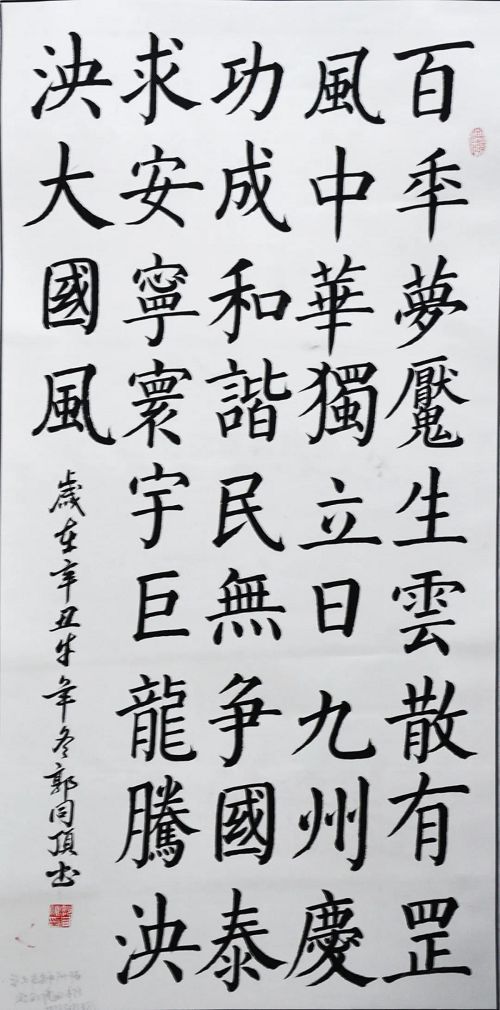 百年夢魘生雲散有罡
風中華獨立日九州慶
功成和諧民無爭國泰
求安寧寰宇巨龍騰泱
泱大國風
歲在辛丑牛年冬郭同頂书